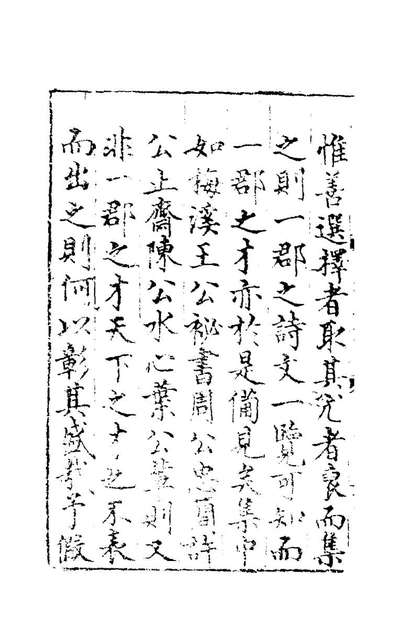 惟善選擇者取其尤者裒而集
之則一郡之詩文一覽可知而
一郡之才亦於是備見矣集中
如梅溪王公祕書周公忠簡許
公止齋陳公水心葉公輩則又
非一郡之才天下之才也不表
而出之則何以彰其盛哉予假